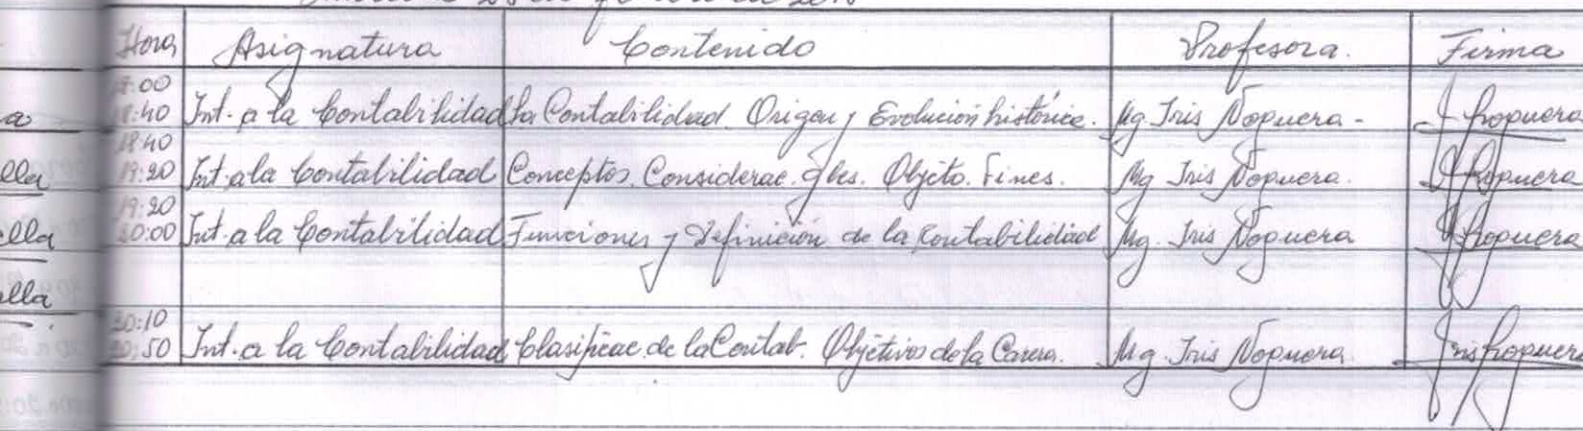 Hora Asignatura Contenido Profesora. Firma
:00
18:40 Int. a la Contabilidad La Contabilidad. Origen y Evolución histórica. Mg Iris Noguera - Noguera
18:40
19:20 Int. a la Contabilidad Conceptos. Considerac. gles. Objeto. Fines. Mg Iris Noguera. Noguera
19:20
20:00 Int. a la Contabilidad Funciones y Definición de la Contabilidad Mg. Iris Noguera Noguera
20:10
20:50 Int. a la Contabilidad Clasificac. de la Contab. Objetivos de la Carrera. Mg. Iris Noguera Iris Noguera